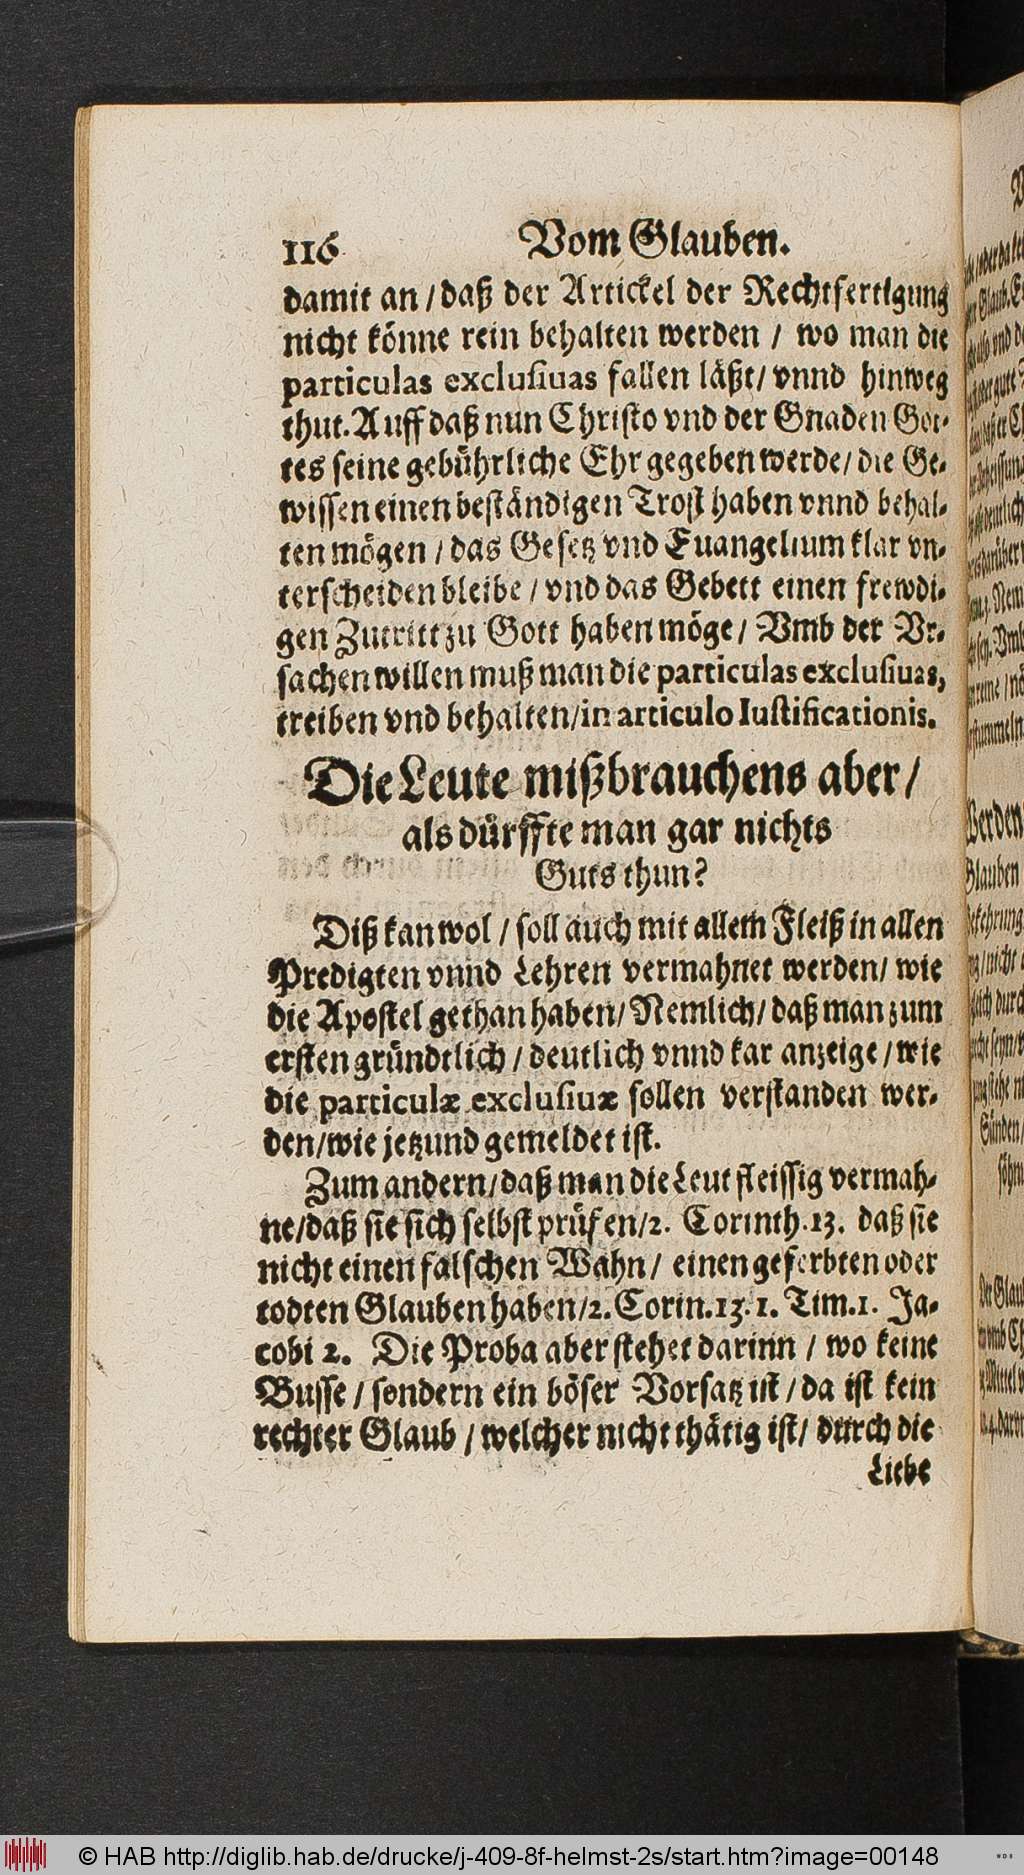 116 Vom Glauben.
damit an / daß der Artickel der Rechtfertigung
nicht könne rein behalten werden / wo man die
particulas exclusiuas fallen läßt / vnnd hinweg
thut. Auff daß nun Christo vnd der Gnaden Got-
tes seine gebührliche Ehr gegeben werde / die Ge-
wissen einen beständigen Trost haben vnnd behal-
ten mögen / das Gesetz vnd Euangelium klar vn-
terscheiden bleibe / vnd das Gebett einen frewdi-
gen Zutritt zu Gott haben möge / Vmb der Vr-
sachen willen muß man die particulas exclusiuas,
treiben vnd behalten / in articulo Iustificationis.
Die Leute mißbrauchens aber /
als dürffte man gar nichts
Guts thun?
Diß kan wol / soll auch mit allem Fleiß in allen
Predigten vnnd Lehren vermahnet werden / wie
die Apostel gethan haben / Nemlich / daß man zum
ersten gründtlich / deutlich vnnd kar anzeige / wie
die particulæ exclusiuæ sollen verstanden wer-
den / wie jetzund gemeldet ist.
Zum andern / daß man die Leut fleissig vermah-
ne / daß sie sich selbst prüfen / 2. Corinth. 13. daß sie
nicht einen falschen Wahn / einen geferbten oder
todten Glauben haben / 2. Corin. 13. 1. Tim. 1. Ja-
cobi 2. Die Proba aber stehet darinn / wo keine
Busse / sondern ein böser Vorsatz ist / da ist kein
rechter Glaub / welcher nicht thätig ist / durch die
Liebe
© HAB http://diglib.hab.de/drucke/j-409-8f-helmst-2s/start.htm?image=00148